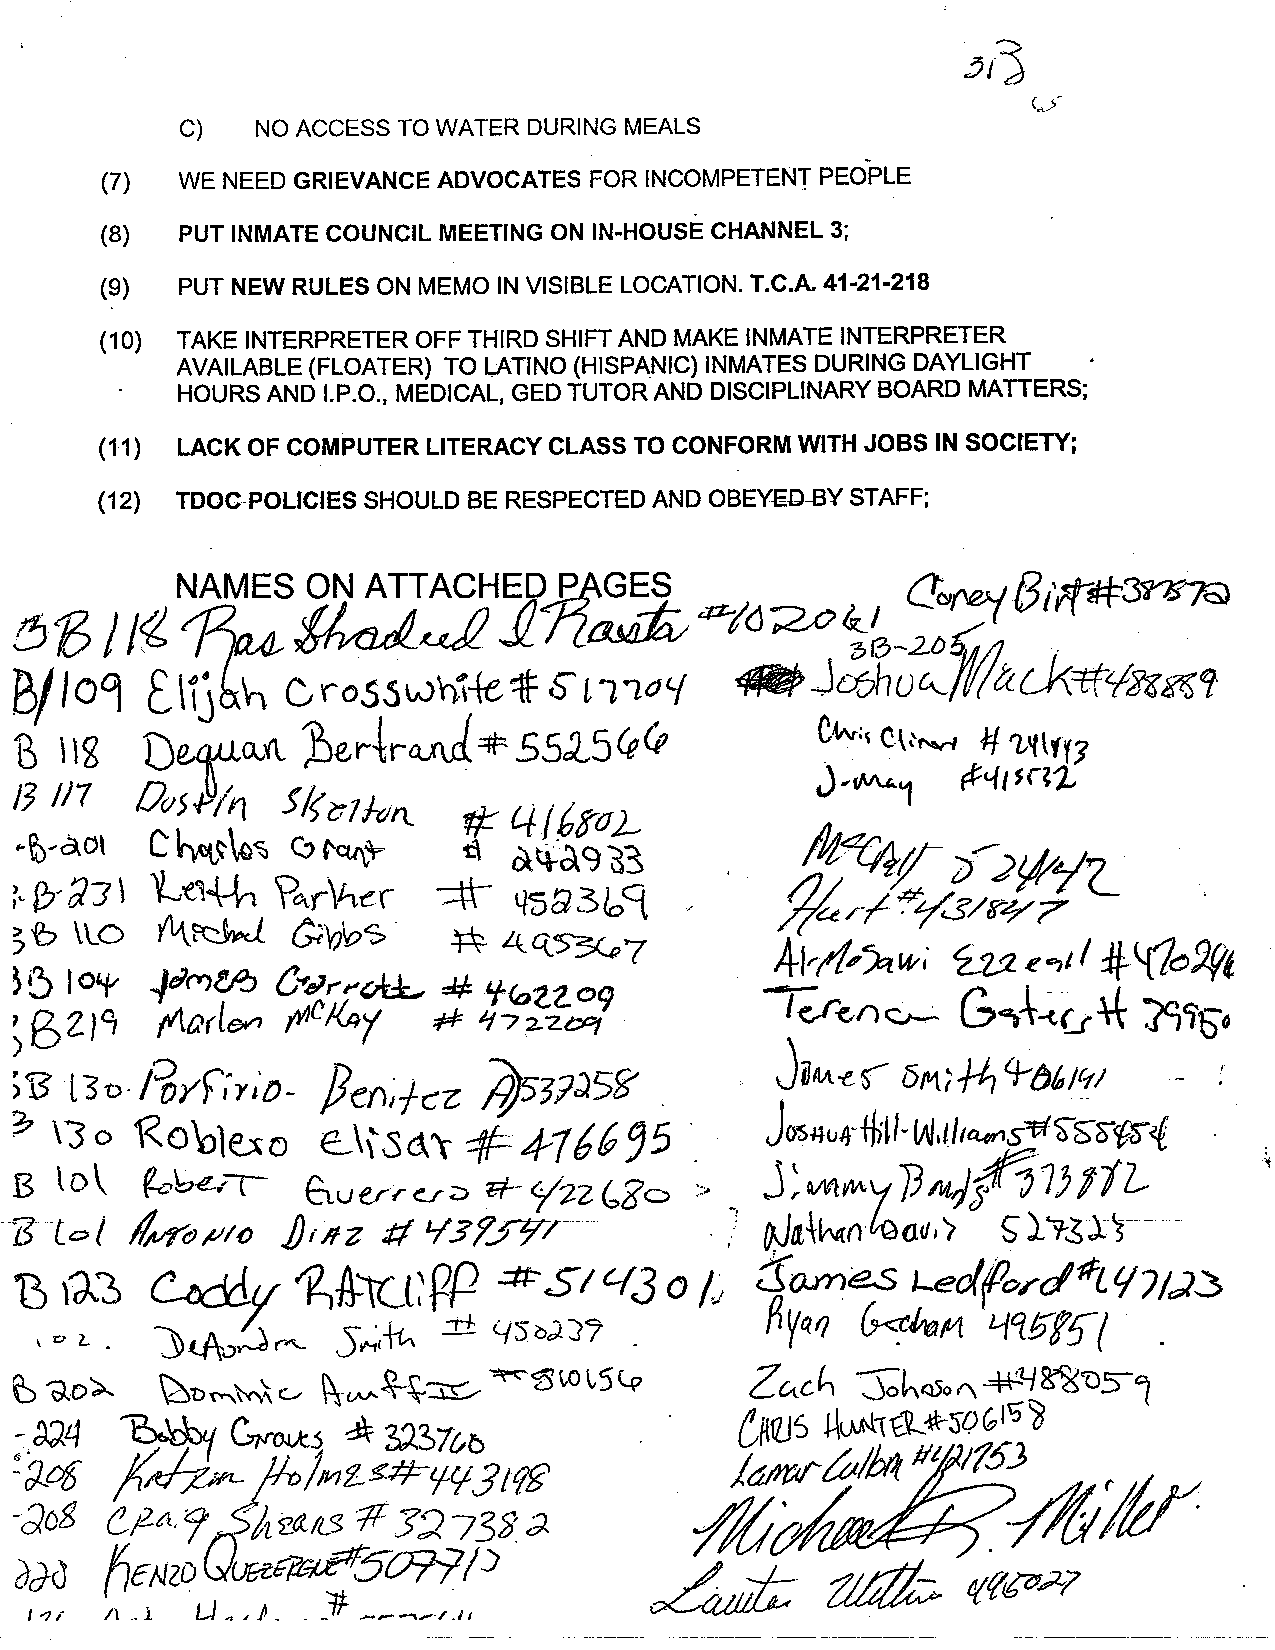 3B
C) NO ACCESS TO WATER DURING MEALS
(7) WE NEED GRIEVANCE ADVOCATES FOR INCOMPETENT PEOPLE
(8) PUT INMATE COUNCIL MEETING ON IN-HOUSE CHANNEL 3;
(9) PUT NEW RULES ON MEMO IN VISIBLE LOCATION. T.C.A. 41-21-218
(10) TAKE INTERPRETER OFF THIRD SHIFT AND MAKE INMATE INTERPRETER
AVAILABLE (FLOATER) TO LATINO (HISPANIC) INMATES DURING DAYLIGHT
HOURS AND I.P.O., MEDICAL, GED TUTOR AND DISCIPLINARY BOARD MATTERS;
(11) LACK OF COMPUTER LITERACY CLASS TO CONFORM WITH JOBS IN SOCIETY;
(12) TDOC POLICIES SHOULD BE RESPECTED AND OBEYED BY STAFF;
NAMES ON ATTACHED PAGES
3B118 Ras Shadeed I Rasta #102061
B/109 Elijah Crosswhite # 517704
B 118 Dequan Bertrand # 552566
B 117 Dustin Skelton # 416802
-B-201 Charles Grant # 242933
B-231 Keith Parker # 452369
3B 110 Michael Gibbs # 495367
3B 104 James Garrott # 462209
B219 Marlon McKay # 472209
3B 130 Porfirio- Benitez 537258
3 130 Roblero elisar # 476695
B 101 Robert Guerrero # 422680
B 101 Antonio Diaz # 439541
B 123 Coddy RATCliff # 514301
102. DeAondra Smith # 450239
B 202 Dominic II
-224 Bobby Graves # 323760
-208 Holmes # 443198
-208 CRaig Shears # 327382
228 KENZO
Corey
3B-205
Joshua Mack # 488889
Chris
J-May
McCall 524142
Hurt # 431847
Al-Mosawi
Gaters #
James Smith 406141
JOSHUA Hill-Williams # 555454
Jimmy # 373872
Nathan Davis 527323
James Ledford # 147123
Ryan 495851
Zach Johnson # 488059
CHRIS HUNTER # 506158
Lamar # 421753
Michael D. Miller
496027